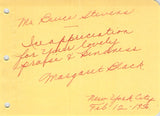 Mr Bruce Stevens
In appreciation
for your lovely
praise & kindness
Margaret Black
New York City
Feb. 12 1936